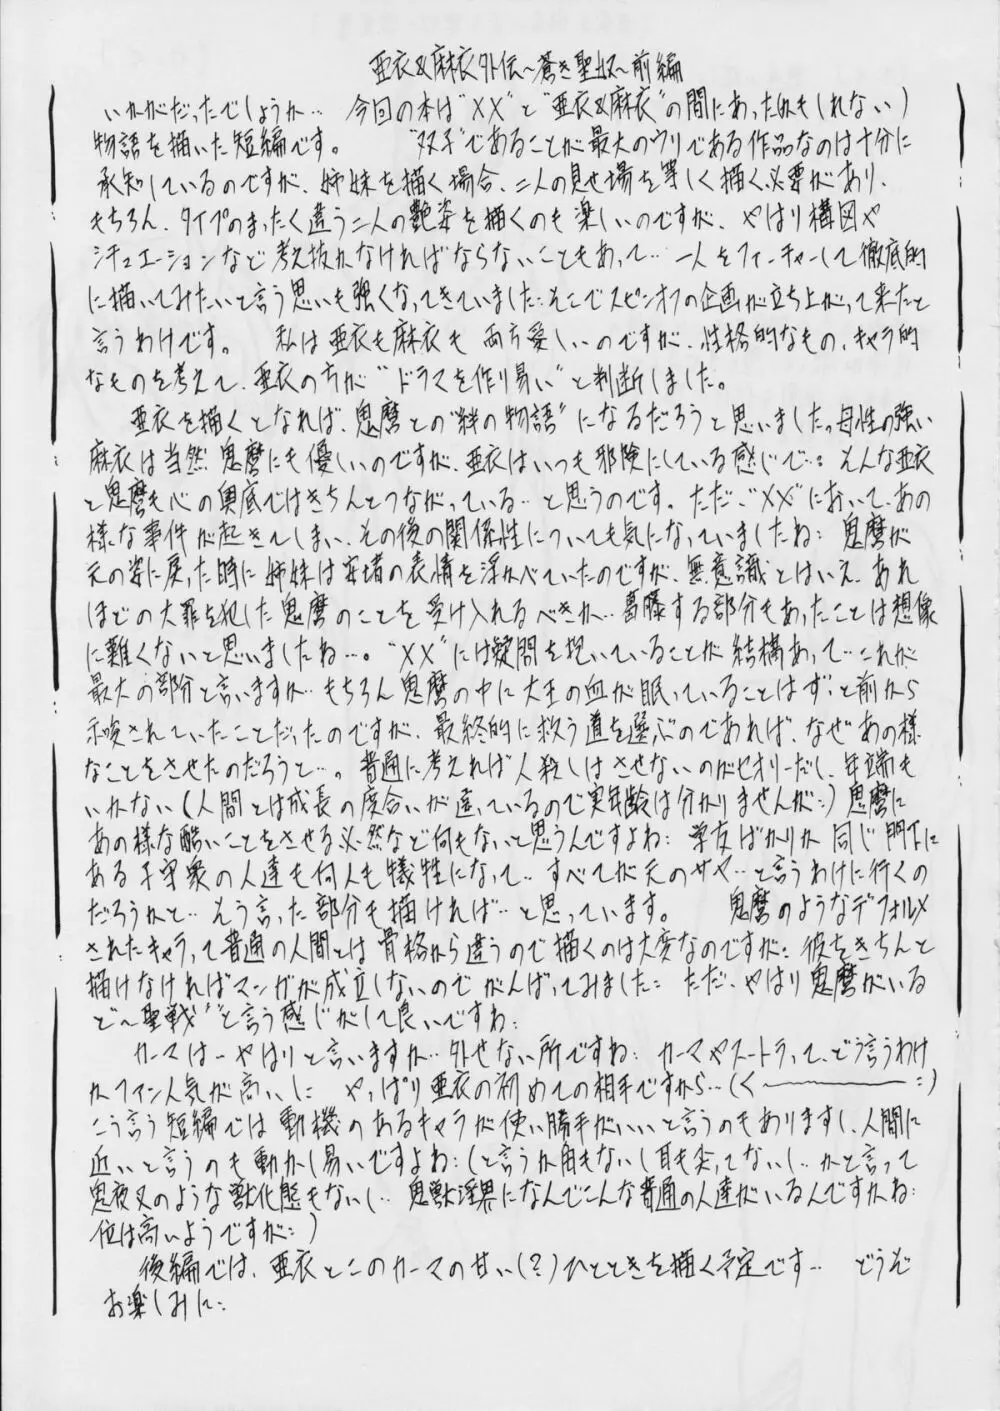 亜衣&麻衣外伝～蒼き聖奴～前編
いかがだったでしょうか… 今回の本は"XX"と"亜衣&麻衣"の間にあった(かもしれない)
物語を描いた短編です。 "双子"であることが最大のウリである作品なのは十分に
承知しているのですが、姉妹を描く場合、二人の見せ場を等しく描く必要があり、
もちろん、タイプのまったく違う二人の艶姿を描くのも楽しいのですが、やはり構図や
シチュエーションなど考え抜かなければならないこともあって… 一人をフィーチャーして徹底的
に描いてみたいと言う思いも強くなってきていました… そこでスピンオフの企画が立ち上がって来たと
言うわけです。 私は亜衣も麻衣も両方愛しいのですが、性格的なもの、キャラ的
なものを考えて、亜衣の方が"ドラマを作り易い"と判断しました。
亜衣を描くとなれば、鬼麿との"絆の物語"になるだろうと思いました。母性の強い
麻衣は当然鬼麿にも優しいのですが、亜衣はいつも邪険にしている感じで… そんな亜衣
と鬼麿も心の奥底ではきちんとつながっている…と思うのです。ただ、"XX"において、あの
様な事件が起きてしまい、その後の関係性についても気になっていましたね… 鬼麿が
元の姿に戻った時に姉妹は安堵の表情を浮かべていたのですが、無意識とはいえ、あれ
ほどの大罪を犯した鬼麿のことを受け入れるべきか…葛藤する部分もあったことは想像
に難くないと思いましたね…。"XX"には疑問を抱いていることが結構あって…これが
最大の部分と言いますか… もちろん鬼麿の中に大王の血が眠っていることはずっと前から
示唆されていたことだったのですが、最終的に救う道を選ぶのであれば、なぜあの様
なことをさせたのだろうと…。普通に考えれば人殺しはさせないのがセオリーだし、年端も
いかない(人間とは成長の度合いが違っているので実年齢は分かりませんが…)鬼麿に
あの様な酷いことをさせる必然など何もないと思うんですよね… 学友ばかりか同じ門下に
ある子守衆の人達も何人も犠牲になって… すべてが元のサヤ…と言うわけに行くの
だろうかと… そう言った部分も描ければ…と思っています。 鬼麿のようなデフォルメ
されたキャラって普通の人間とは骨格から違うので描くのは大変なのですが… 彼をきちんと
描けなければマンガが成立しないのでがんばってみました… ただ、やはり鬼麿がいる
ど～聖戦"と言う感じがして良いですね…
カーマは…やはりと言いますか…外せない所ですね… カーマやスートラって、どう言うわけ
かファン人気が高いしに やっぱり亜衣の初めての相手ですから…(く～:)
こう言う短編では動機のあるキャラが使い勝手がいいと言うのもありますし、人間に
近いと言うのも動かし易いですよね…(と言うか角もないし耳も尖ってないし…かと言って
鬼夜叉のような獣化態もないし… 鬼獣淫界になんでこんな普通の人達がいるんですかね…
位は高いようですが…)
後編では、亜衣とこのカーマの甘い(?)ひとときを描く予定です… どうぞ
お楽しみに…